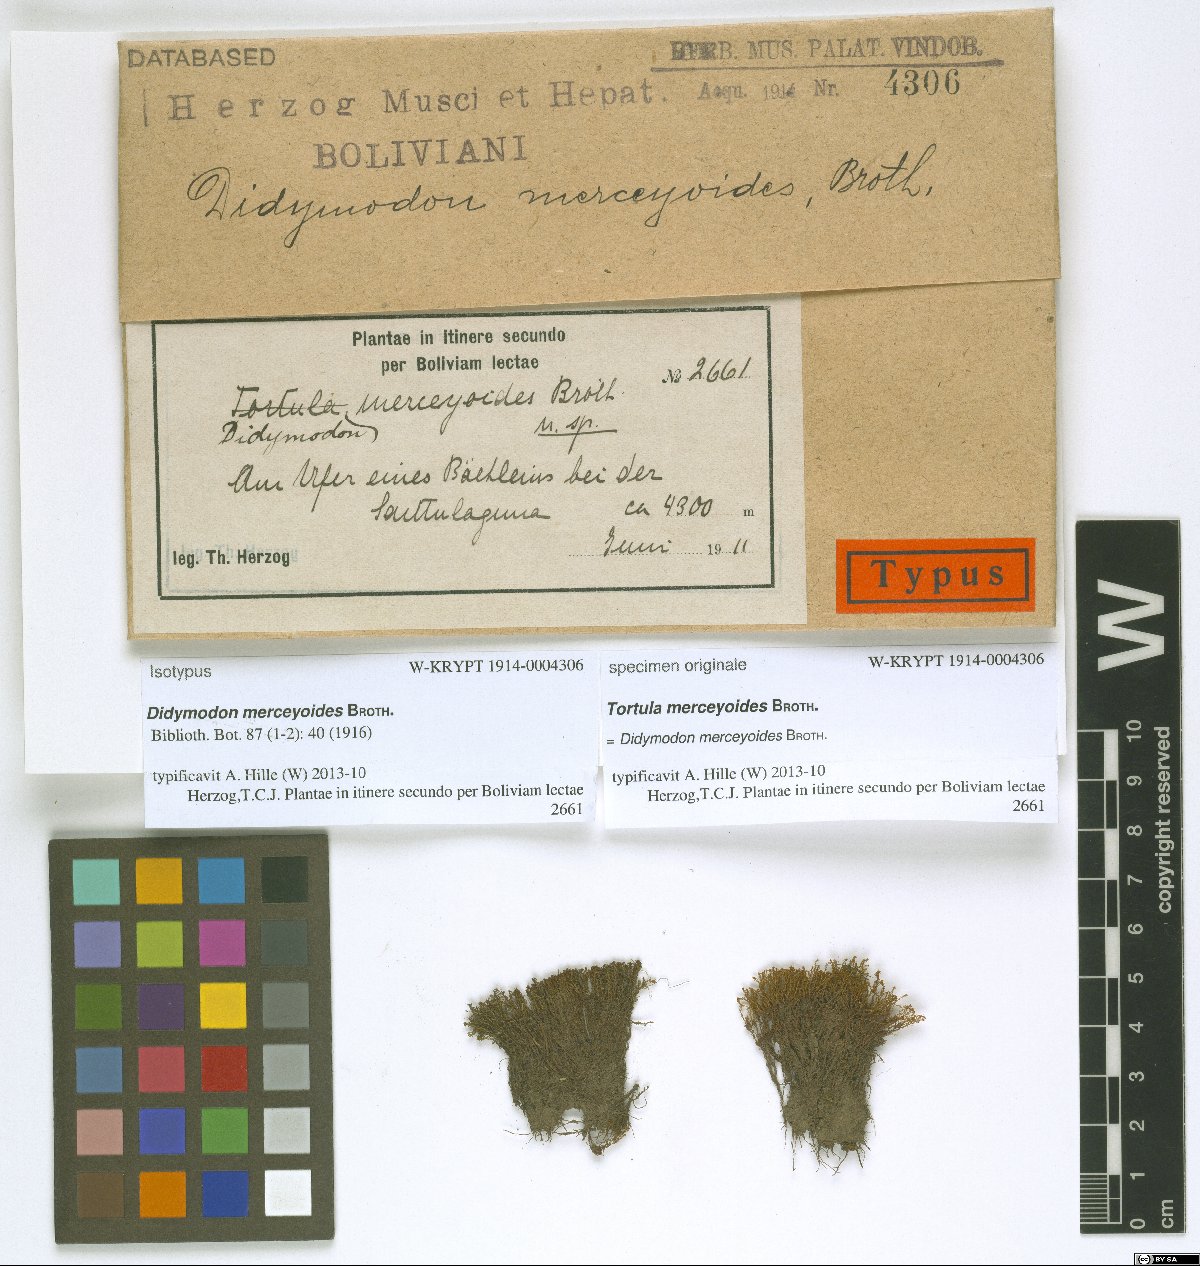 DATABASED
HERB. MUS. PALAT. VINDOB.
Herzog Musci et Hepat. Acqu. 1914 Nr. 4306
BOLIVIANI
Didymodon merceyoides, Broth.
Plantae in itinere secundo
per Boliviam lectae
№ 2661
Tortula merceyoides Broth.
Didymodon n. sp.
Am Ufer eines Bächleins bei der
ca 4300 m
leg. Th. Herzog Juni 1911
Typus
Isotypus W-KRYPT 1914-0004306
Didymodon merceyoides BROTH.
Biblioth. Bot. 87 (1-2): 40 (1916)
typificavit A. Hille (W) 2013-10
Herzog,T.C.J. Plantae in itinere secundo per Boliviam lectae
2661
specimen originale W-KRYPT 1914-0004306
Tortula merceyoides BROTH.
= Didymodon merceyoides BROTH.
typificavit A. Hille (W) 2013-10
Herzog,T.C.J. Plantae in itinere secundo per Boliviam lectae
2661
W
copyright reserved
10
9
8
7
6
5
4
3
2
1
0
cm
cc BY SA